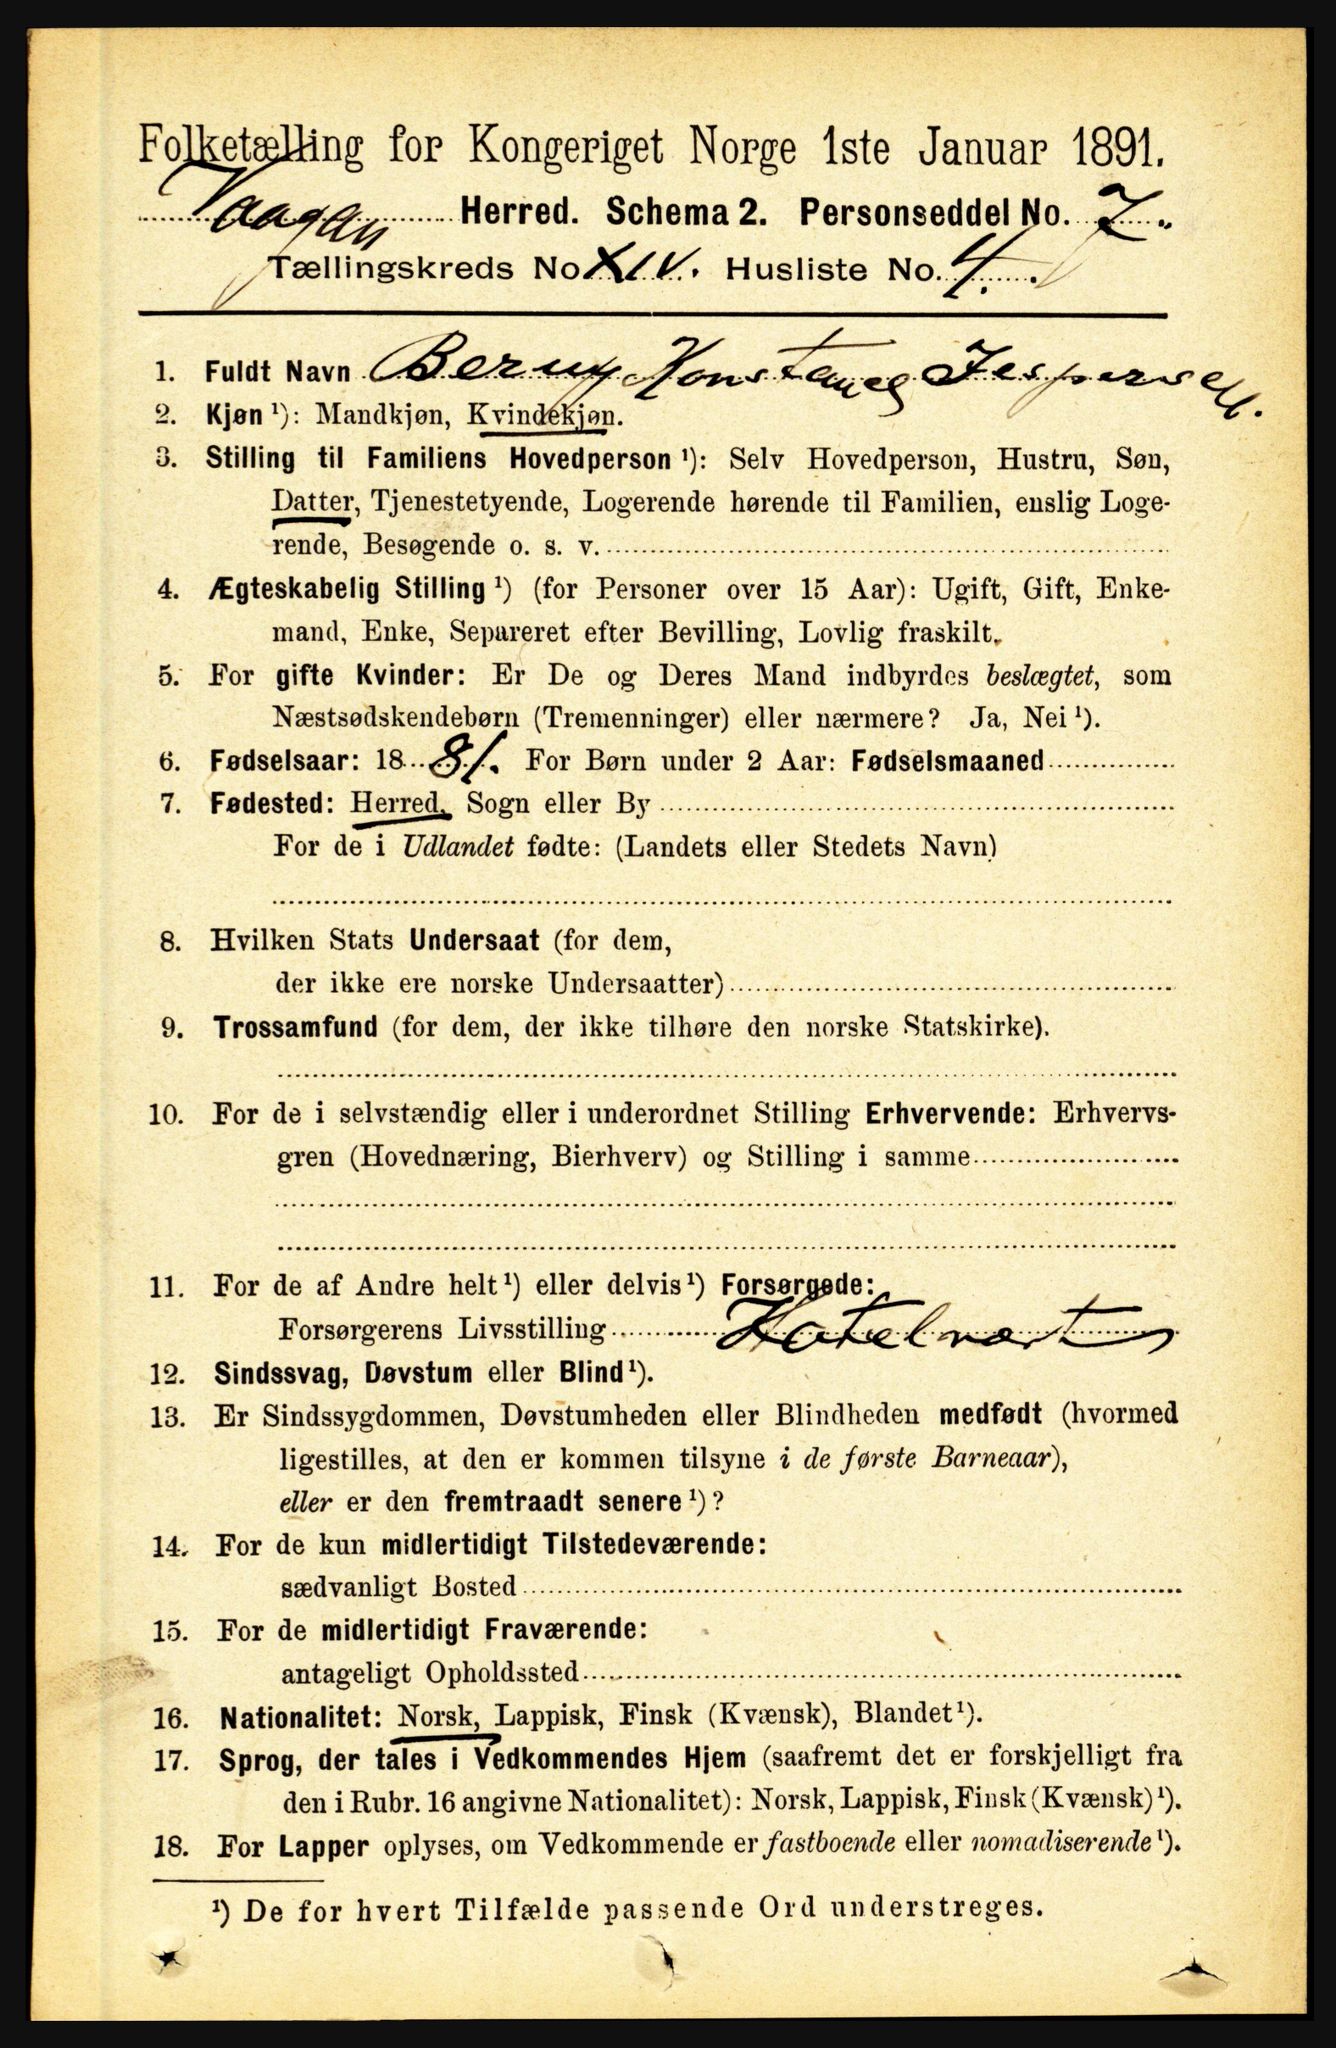 Folketælling for Kongeriget Norge 1ste Januar 1891.
Vaagan Herred. Schema 2. Personseddel No. 7.
Tællingskreds No XIV. Husliste No. 4.
1. Fuldt Navn Jespersen.
2. Kjøn ¹): Mandkjøn, Kvindekjøn.
3. Stilling til Familiens Hovedperson ¹): Selv Hovedperson, Hustru, Søn,
Datter, Tjenestetyende, Logerende hørende til Familien, enslig Loge-
rende, Besøgende o. s. v.
4. Ægteskabelig Stilling ¹) (for Personer over 15 Aar): Ugift, Gift, Enke-
mand, Enke, Separeret efter Bevilling, Lovlig fraskilt.
5. For gifte Kvinder: Er De og Deres Mand indbyrdes beslægtet, som
Næstsødskendebørn (Tremenninger) eller nærmere? Ja, Nei ¹).
6. Fødselsaar: 18 81. For Børn under 2 Aar: Fødselsmaaned
7. Fødested: Herred, Sogn eller By
For de i Udlandet fødte: (Landets eller Stedets Navn)
8. Hvilken Stats Undersaat (for dem,
der ikke ere norske Undersaatter)
9. Trossamfund (for dem, der ikke tilhøre den norske Statskirke).
10. For de i selvstændig eller i underordnet Stilling Erhvervende: Erhvervs-
gren (Hovednæring, Bierhverv) og Stilling i samme
11. For de af Andre helt ¹) eller delvis ¹) Forsørgede:
Forsørgerens Livsstilling Hotelvært
12. Sindssvag, Døvstum eller Blind ¹).
13. Er Sindssygdommen, Døvstumheden eller Blindheden medfødt (hvormed
ligestilles, at den er kommen tilsyne i de første Barneaar),
eller er den fremtraadt senere ¹)?
14. For de kun midlertidigt Tilstedeværende:
sædvanligt Bosted
15. For de midlertidigt Fraværende:
antageligt Opholdssted
16. Nationalitet: Norsk, Lappisk, Finsk (Kvænsk), Blandet ¹).
17. Sprog, der tales i Vedkommendes Hjem (saafremt det er forskjelligt fra
den i Rubr. 16 angivne Nationalitet): Norsk, Lappisk, Finsk (Kvænsk) ¹).
18. For Lapper oplyses, om Vedkommende er fastboende eller nomadiserende ¹).
¹) De for hvert Tilfælde passende Ord understreges.